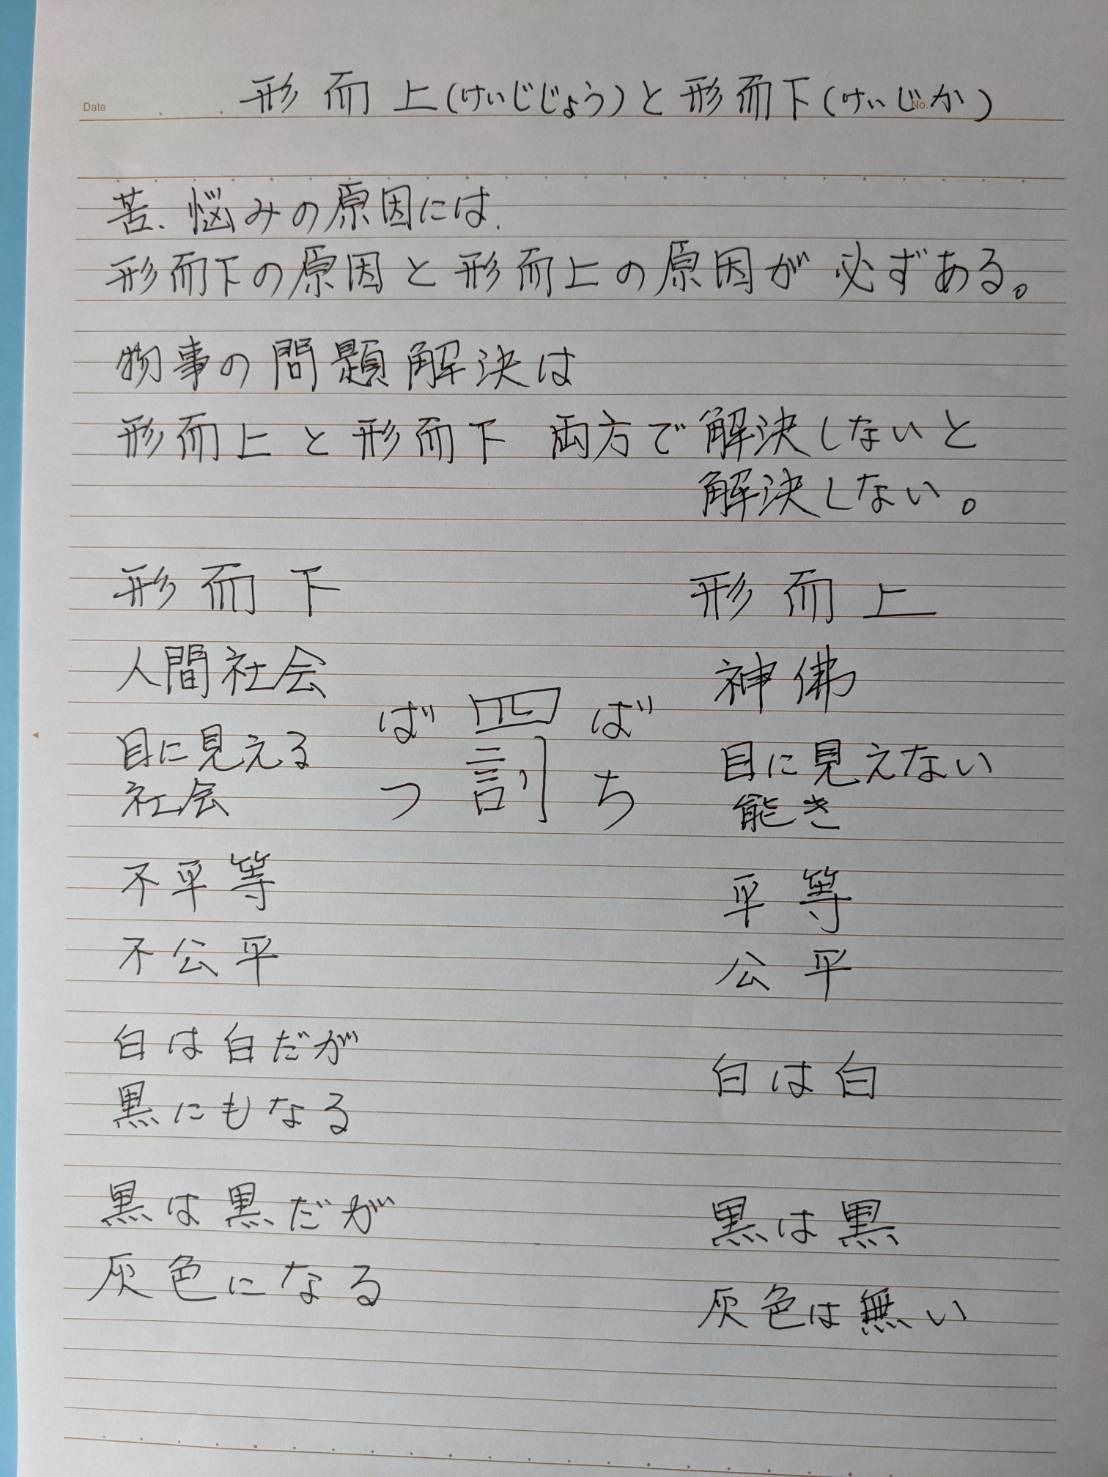 Date
No.
形而上(けいじじょう)と形而下(けいじか)
苦、悩みの原因には、
形而下の原因と形而上の原因が必ずある。
物事の問題解決は
形而上と形而下 両方で解決しないと
解決しない。
形而下
人間社会
目に見える
社会
不平等
不公平
白は白だが
黒にもなる
黒は黒だが
灰色になる
ばつ
罰
ばち
形而上
神佛
目に見えない
能き
平等
公平
白は白
黒は黒
灰色は無い